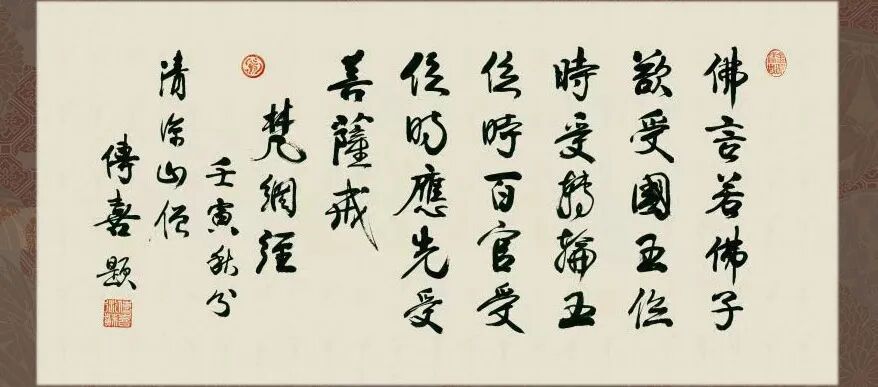 佛言若佛子
欲受國王位
時受轉輪王
位時百官受
位時應先受
菩薩戒
梵網經
壬寅秋分
清涼山僧
傳喜題